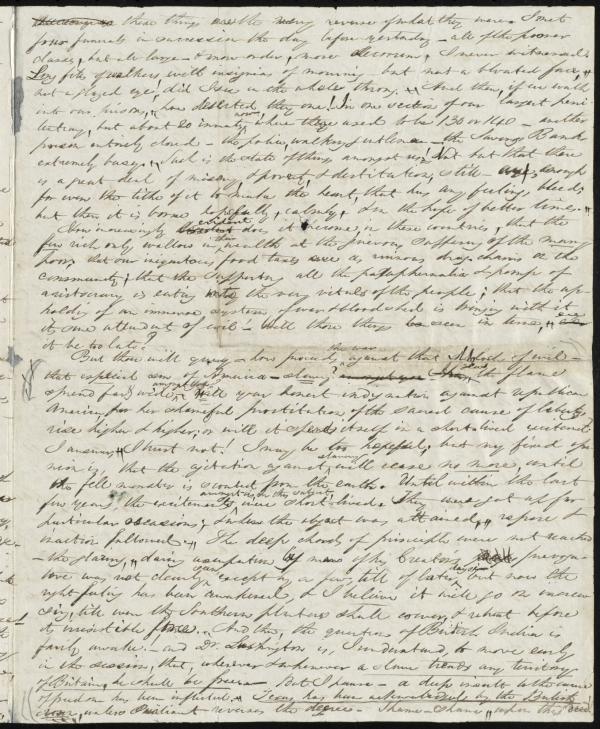 these things are the very reverse of what they were. I met
four funerals in succession the day before yesterday - all of the poorer
classes, but all large - & more order, more decorum, I never witnessed.
Long files of walkers with insignias of mourning - but not a bloated face,
not a glazed eye did I see in the whole throng. And then, if we walk
into our prisons, how deserted they are! In one section of our largest peni-
tentiary, but about 20 inmates now, where there used to be 130 or 140 - another
prison entirely closed - the police walking gentlemen - the Savings Bank
extremely busy. Such is the state of things amongst us. Not but that there
is a great deal of misery & poverty & destitution, still - enough
for even the tithe of it to make the heart, that has any feeling, bleed;
but then it is borne hopefully, calmly, & in the hope of better times.
How increasingly evident does it become in these countries, that the
few rich only wallow in their wealth at the grievous suffering of the many
poor; that our iniquitous food taxes are a ruinous drag-chain on the
community; that the supporting all the paraphernalia & pomp of
aristocracy is eating into the very vitals of the people; that the up-
holding of an immense system of war & bloodshed is bringing with it
its sure attendant of evil - Will these things be seen in time, ere
it be too late?
But thou wilt query - how proceeds the war against that Moloch of evil -
that especial sin of America - slavery? the flame
spread far & wide? Will your honest indignation amongst you against republican
America for her shameful prostitution of the sacred cause of liberty
rise higher & higher, or will it spend itself in a short-lived excitement?
I answer, I trust not! I may be too hopeful; but my fixed opi-
nion is, that the agitation against slavery will cease no more, until
the fell monster is scouted from the earth. Until within the last
few years, the excitements amongst us on this subject were short-lived. They were got up for
particular occasions; & unless the object was attained, repose &
inaction followed. The deep chords of principle were not reached
- the glaring, daring usurpation by man of the Creator's preroga-
tive was not clearly seen, except by a few, till of late days - but now the
right feeling has been awakened, & I believe it will go on increas-
ing, till even the Southern planters shall cower & retreat before
its irresistible force. And then, the question of British India is
fairly awake - and Dr. Lushington is, I understand, to move early
in the session, that, wherever & whenever a slave treads any territory
of Britain, he shall be free. But I pause - a deep insult to the cause
of freedom has been inflicted. Texas has been acknowledged by the British
crown, unless Parliament reverses the decree - Shame - shame, upon the deed